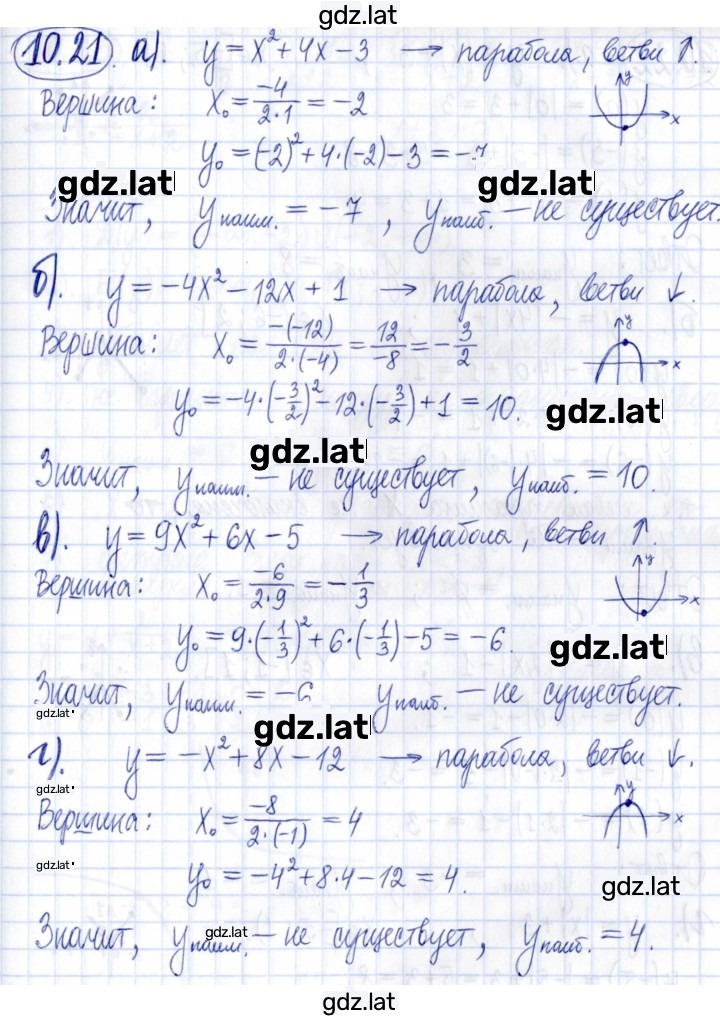 gdz.lat
10.21. а). y = x² + 4x − 3 → парабола, ветви ↑.
Вершина: x₀ = −4/(2·1) = −2
y x
y₀ = (−2)² + 4·(−2) − 3 = −7
gdz.lat gdz.lat
Значит, yнаим. = −7, yнаиб. — не существует.
б). y = −4x² − 12x + 1 → парабола, ветви ↓.
Вершина: x₀ = −(−12)/(2·(−4)) = 12/−8 = −3/2
y x
y₀ = −4·(−3/2)² − 12·(−3/2) + 1 = 10.
gdz.lat
gdz.lat
Значит, yнаим. — не существует, yнаиб. = 10.
в). y = 9x² + 6x − 5 → парабола, ветви ↑.
Вершина: x₀ = −6/(2·9) = −1/3
y x
y₀ = 9·(−1/3)² + 6·(−1/3) − 5 = −6.
gdz.lat
Значит, yнаим. = −6 yнаиб. — не существует.
gdz.lat
gdz.lat
г). y = −x² + 8x − 12 → парабола, ветви ↓.
gdz.lat
Вершина: x₀ = −8/(2·(−1)) = 4
y x
gdz.lat
y₀ = −4² + 8·4 − 12 = 4.
gdz.lat
gdz.lat
Значит, yнаим. — не существует, yнаиб. = 4.
gdz.lat